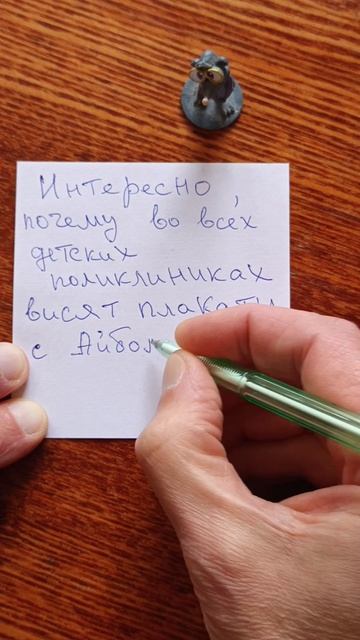 Интересно,
почему во всех
детских
поликлиниках
висят плакаты
с Айбол